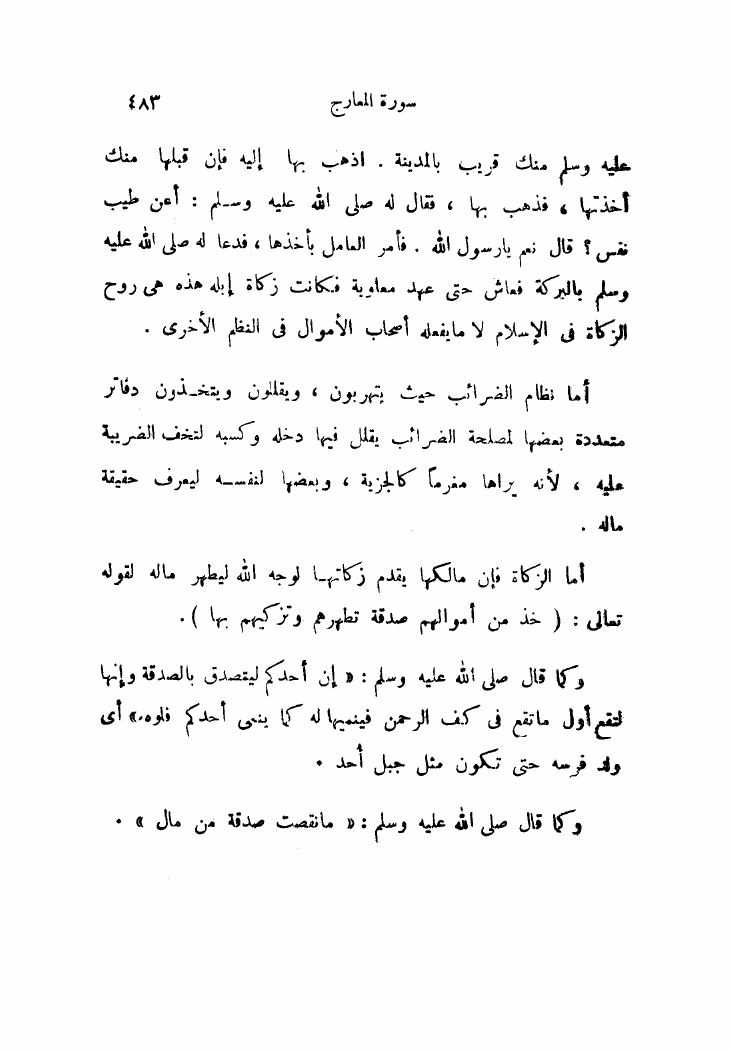 سورة المعارج ٤٨٣
عليه وسلم منك قريب بالمدينة . اذهب بها إليه فإن قبلها منك
أخذتها ، فذهب بها ، فقال له صلى الله عليه وسلم : أعن طيب
نفس ؟ قال نعم يارسول الله . فأمر العامل بأخذها ، فدعا له صلى الله عليه
وسلم بالبركة فعاش حتى عهد معاوية فكانت زكاة إبله هذه هى روح
الزكاة فى الإسلام لا مايفعله أصحاب الأموال فى النظم الأخرى .
أما نظام الضرائب حيث يتهربون ، ويقللون ويتخذون دفاتر
متعددة بعضها لمصلحة الضرائب يقلل فيها دخله وكسبه لتخف الضريبة
عليه ، لأنه يراها مغرماً كالجزية ، وبعضها لنفسه ليعرف حقيقة
ماله .
أما الزكاة فإن مالكها يقدم زكاتها لوجه الله ليطهر ماله لقوله
تعالى : ( خذ من أموالهم صدقة تطهرهم وتزكيهم بها ) .
وكما قال صلى الله عليه وسلم : « إن أحدكم ليتصدق بالصدقة وإنها
لتقع أول ماتقع فى كف الرحمن فينميها له كما ينمى أحدكم فلوه » أى
ولد فرسه حتى تكون مثل جبل أحد .
وكما قال صلى الله عليه وسلم : « مانقصت صدقة من مال » .